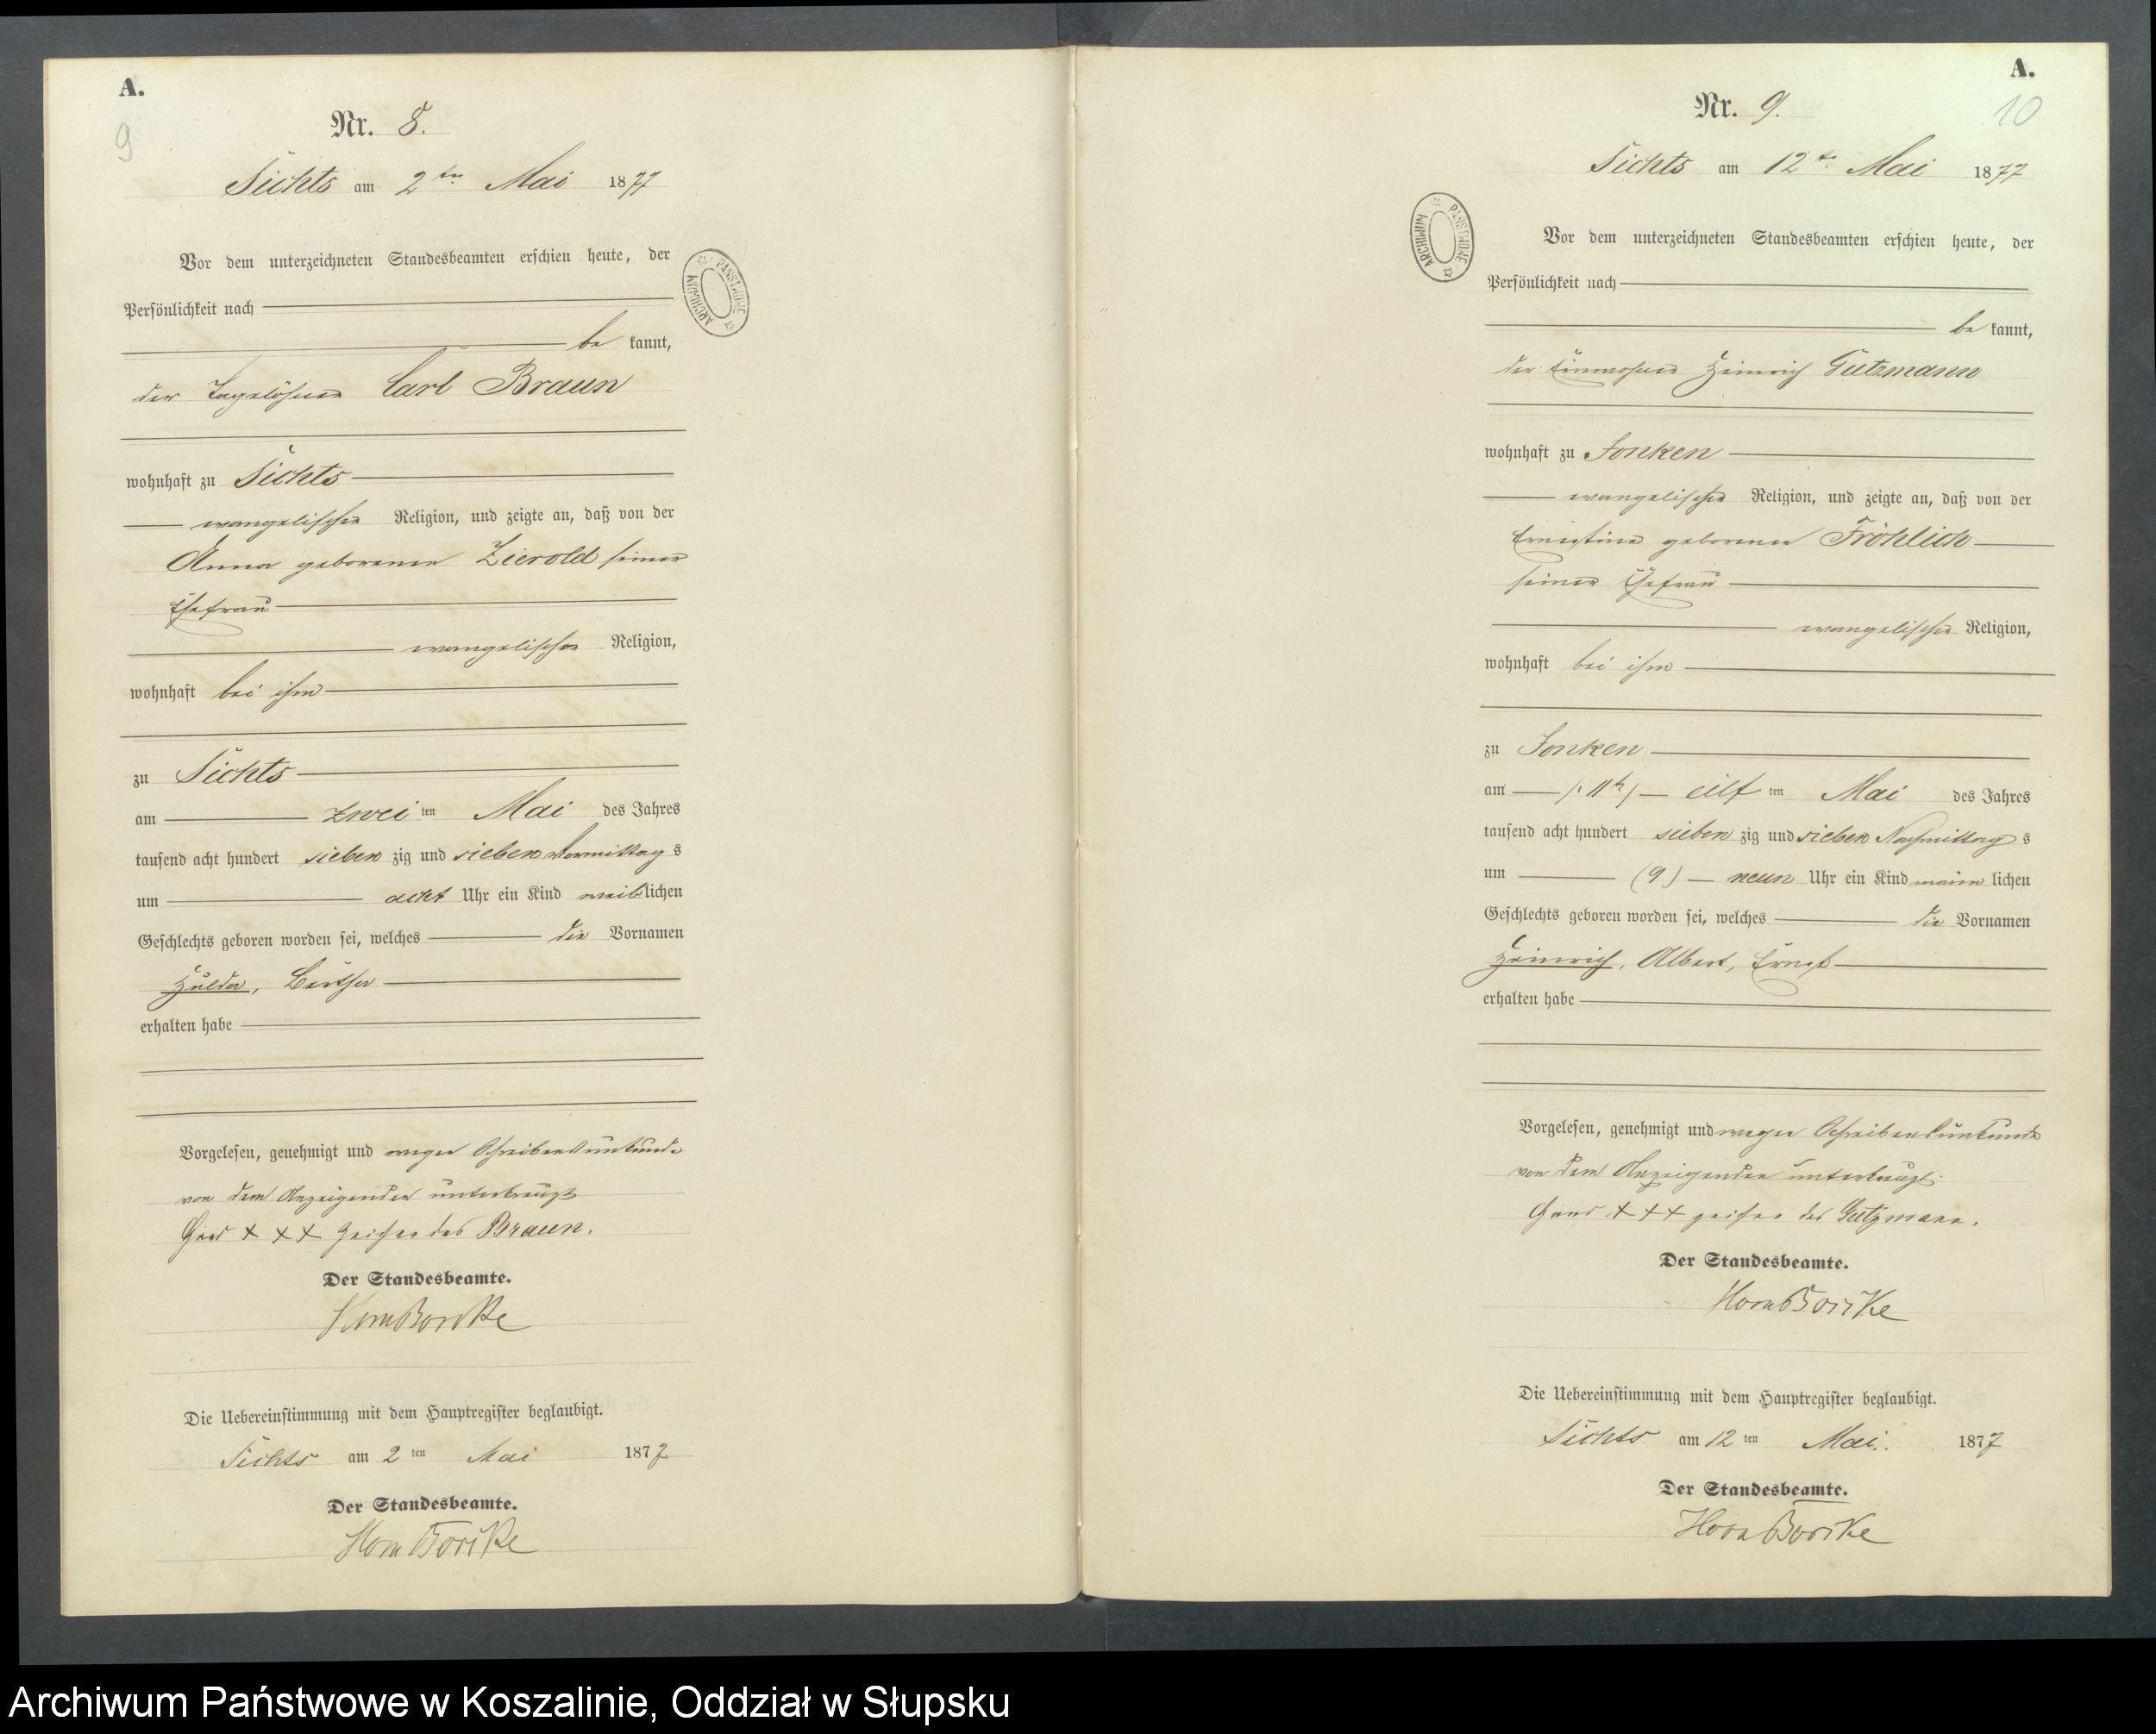 A.
9
Nr. 8.
Sichts am 2ten Mai 1877
Vor dem unterzeichneten Standesbeamten erschien heute, der
Persönlichkeit nach
be kannt,
der Tagelöhner Carl Braun
wohnhaft zu Sichts
evangelischer Religion, und zeigte an, daß von der
Anna geborenen Zierold seiner
Ehefrau
evangelischer Religion,
wohnhaft bei ihm
zu Sichts
am zwei ten Mai des Jahres
tausend acht hundert sieben zig und sieben Vormittag s
um acht Uhr ein Kind weib lichen
Geschlechts geboren worden sei, welches die Vornamen
Hulda, Bertha
erhalten habe
Vorgelesen, genehmigt und wegen Schreibensunkunde
von dem Anzeigenden unterkreuzt
Hand + + + Zeichen des Braun.
Der Standesbeamte.
Die Uebereinstimmung mit dem Hauptregister beglaubigt.
Sichts am 2 ten Mai 1877
Der Standesbeamte.
A.
10
Nr. 9.
Sichts am 12te Mai 1877
Vor dem unterzeichneten Standesbeamten erschien heute, der
Persönlichkeit nach
be kannt,
der Einwohner Heinrich Gutzmann
wohnhaft zu Jonken
evangelischer Religion, und zeigte an, daß von der
Ernestine geborenen Fröhlich
seiner Ehefrau
evangelischer Religion,
wohnhaft bei ihm
zu Jonken
am /: 11te / eilf ten Mai des Jahres
tausend acht hundert sieben zig und sieben Nachmittag s
um (9) neun Uhr ein Kind männ lichen
Geschlechts geboren worden sei, welches die Vornamen
Heinrich, Albert, Ernst
erhalten habe
Vorgelesen, genehmigt und wegen Schreibensunkunde
von dem Anzeigenden unterkreuzt.
Hand + + + zeichen des Gutzmann.
Der Standesbeamte.
Die Uebereinstimmung mit dem Hauptregister beglaubigt.
Sichts am 12 ten Mai. 1877
Der Standesbeamte.
ARCHIWUM PAŃSTWOWE
ARCHIWUM PAŃSTWOWE
Archiwum Państwowe w Koszalinie, Oddział w Słupsku